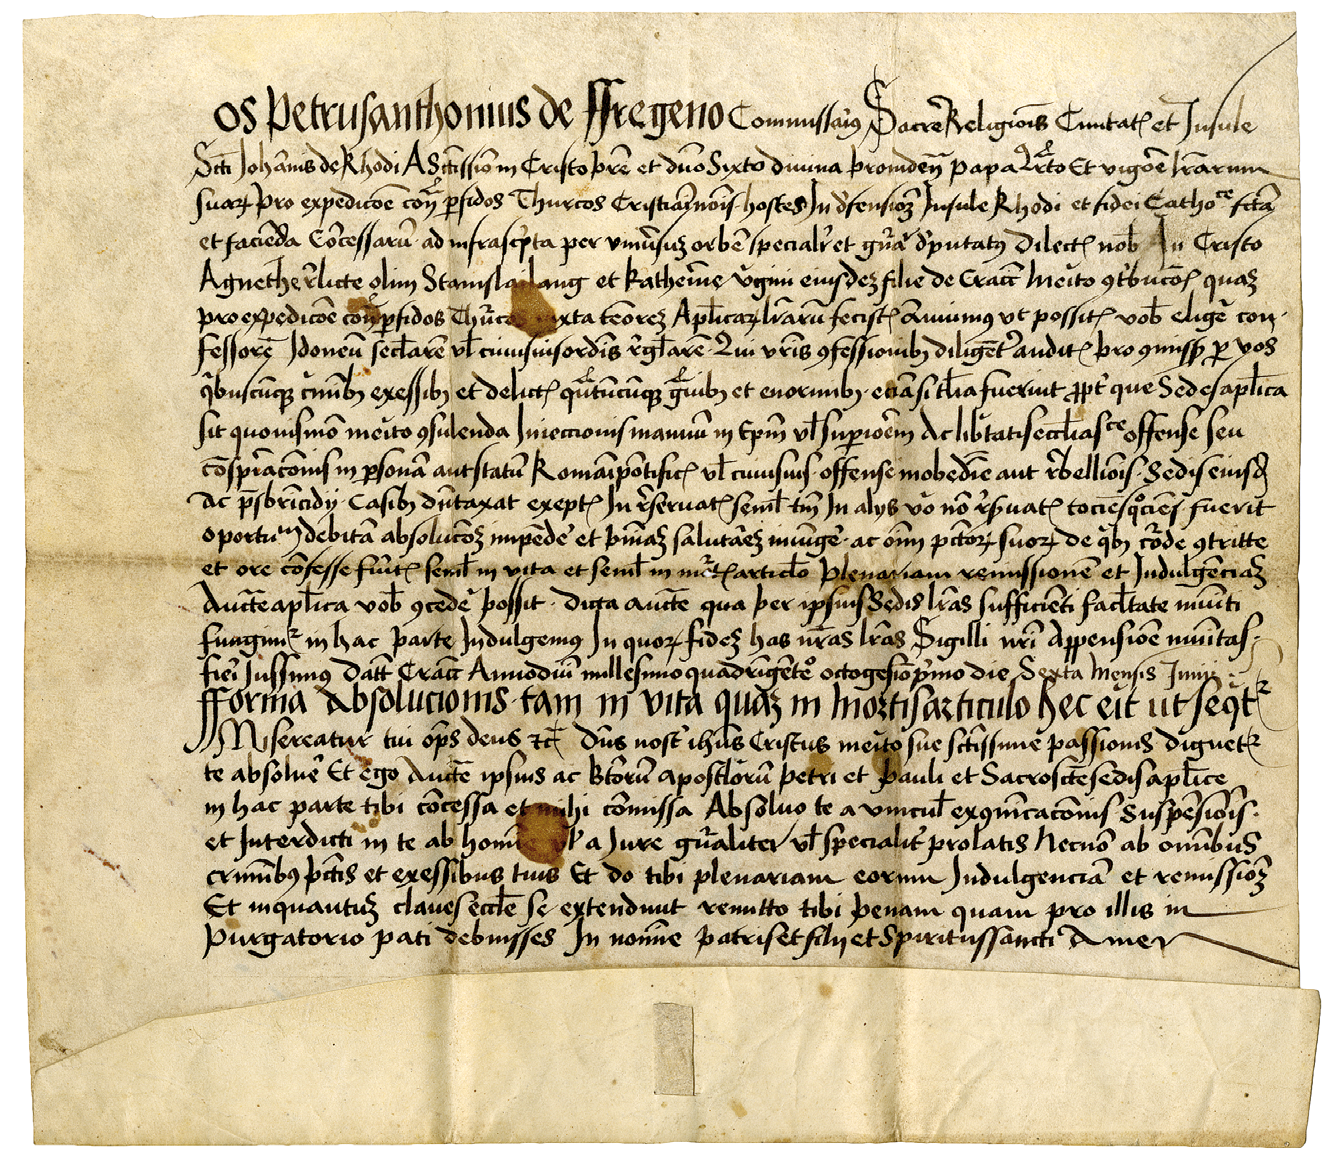 os Petrusanthonius de ffregeno Commissari9 Sacre Religionis Ciuitat3 et Insule
Scti Johannis de Rhodi A Sctissimo in Cristo pre et dno Sixto diuina prouidencia papa qrto Et vigore lrarum
suar3 pro expedicoe contra pfidos Thurcos Cristiani nois hostes In defensionem Insule Rhodi et fidei Cathoce fctam
et facienda Concessaru ad infrascpta per vniuersu3 orbem specialr et gnral deputat9 dilect3 nob In Cristo
Agnethe relicte olim Stanislai lang et katherine virgini eiusde3 filie de Cracc merito 9tribucoes qua3
pro expedicoe contra pfidos Thurcos iuxta tenore3 Aplicar3 lraru fecist3 Annuim9 vt possit3 vob eligere con-
fessore Idoneu seclare vl cuiusuis ordis reglare Qui vris 9fessionib3 diligenter audit3 pro 9missis per vos
qbuscumq3 criminib3 exessib3 et delict3 quantumcumq3 grauib3 et enormib3 etiam si talia fuerint propter que Sedes aplica
sit quouismodo merito 9sulenda Inieccionis manuum in Epm vl superiorem Ac libtatis eccliasce offense seu
conspiracionis in psonam aut statum Romani pontific3 vl cuiusuis offense inobedie aut rebellionis Sedis eiusd
Ac presbricidy Casib3 duntaxat exept3 In reseruat3 semel tm In alys vo no reseruat3 tociens quociens fuerit
oportunum debitam absolucone3 impendere et pnia3 salutare3 iniungere ac omi pctor3 suor3 de qb3 corde 9tritte
et ore confesse fuerit3 semel in vita et semel in mortis articulo plenariam remissione et Indulgencia3
Aucte aplica vob 9cedere possit Dicta aucte qua per ipsius Sedis lras sufficienti facltate muniti
fungimur in hac parte Indulgem9 In quor3 fide3 has nras lras Sigilli nri Appensione munitas
fieri Jussim9 Datt Cracc Anno dni millesimo quadringenteo octogesio pmo die Sexta Mensis Junij
fforma Absolucionis tam in vita qua3 in mortis articulo hec est ut seqtr
Misereatur tui ops deus etc Dns nostr ihus Cristus merito sue sctissime passionis dignetr
te absoluere Et ego Aucte ipsius ac btoru apostloru petri et pauli et Sacroscte sedis aplice
in hac parte tibi concessa et mihi comissa Absoluo te a vincul ex9micacionis Suspensionis
et Interdicti in te ab homine vl a Jure gnraliter vl specialiter prolatis Necno ab omibus
criminib9 pctis et exessibus tuis Et do tibi plenariam eorum Indulgencia et remissione3
Et inquantu3 claues eccle se extendunt remitto tibi penam quam pro illis in
Purgatorio pati debuisses In nomine patris et filij et Spiritussancti Amen